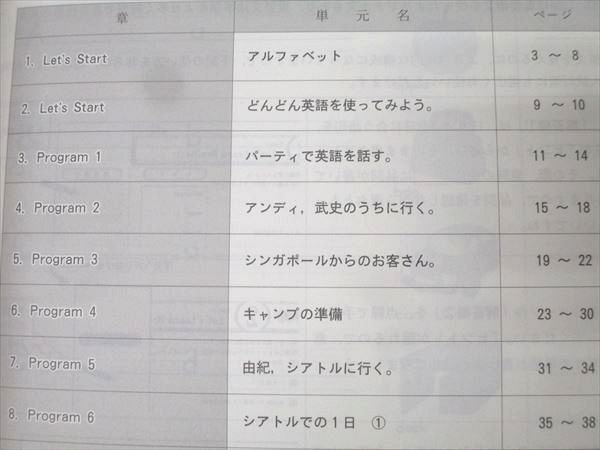 章 単元名 ページ
1. Let's Start アルファベット 3 ～ 8
2. Let's Start どんどん英語を使ってみよう。 9 ～ 10
3. Program 1 パーティで英語を話す。 11 ～ 14
4. Program 2 アンディ，武史のうちに行く。 15 ～ 18
5. Program 3 シンガポールからのお客さん。 19 ～ 22
6. Program 4 キャンプの準備 23 ～ 30
7. Program 5 由紀，シアトルに行く。 31 ～ 34
8. Program 6 シアトルでの１日 ① 35 ～ 38